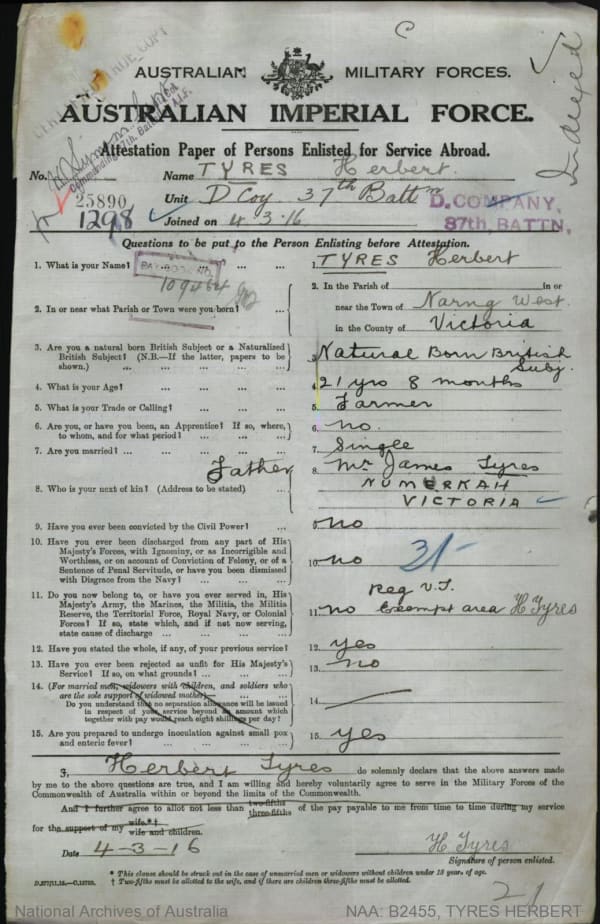 C
AUSTRALIAN MILITARY FORCES.
AUSTRALIAN IMPERIAL FORCE.
Indexed
Attestation Paper of Persons Enlisted for Service Abroad.
No. Name TYRES Herbert.
25890 Unit D Coy 37th Battn D. COMPANY,
1298 Joined on 4.3.16 37th. BATTN,
Questions to be put to the Person Enlisting before Attestation.
1. What is your Name? ... ... 1. TYRES Herbert
PAY BOOK NO.
109464
2. In the Parish of in or
2. In or near what Parish or Town were you born? near the Town of Narng West.
in the County of Victoria
3. Are you a natural born British Subject or a Naturalized
British Subject? (N.B.—If the latter, papers to be
shown.) 3. Natural Born British
Subj.
4. What is your Age? ... ... 4. 21 yrs 8 months
5. What is your Trade or Calling? ... ... 5. Farmer
6. Are you, or have you been, an Apprentice? If so, where,
to whom, and for what period? ... ... 6. no.
7. Are you married? ... ... 7. Single
Father
8. Mr James Tyres
8. Who is your next of kin? (Address to be stated) ... NUMURKAH
VICTORIA
9. Have you ever been convicted by the Civil Power? ... 9. no
10. Have you ever been discharged from any part of His
Majesty's Forces, with Ignominy, or as Incorrigible and
Worthless, or on account of Conviction of Felony, or of a
Sentence of Penal Servitude, or have you been dismissed
with Disgrace from the Navy? ... ... 10. no 31-
11. Do you now belong to, or have you ever served in, His
Majesty's Army, the Marines, the Militia, the Militia
Reserve, the Territorial Force, Royal Navy, or Colonial
Forces? If so, state which, and if not now serving,
state cause of discharge ... ... 11. no
Reg V.T.
Exempt area H Tyres
12. Have you stated the whole, if any, of your previous service? 12. yes
13. Have you ever been rejected as unfit for His Majesty's
Service? If so, on what grounds? ... ... 13. no
14. (For married men, widowers with children, and soldiers who
are the sole support of widowed mother)—
Do you understand that no separation allowance will be issued
in respect of your service beyond an amount which
together with pay would reach eight shillings per day? 14.
15. Are you prepared to undergo inoculation against small pox
and enteric fever? ... ... 15. yes
I, Herbert Tyres do solemnly declare that the above answers made
by me to the above questions are true, and I am willing and hereby voluntarily agree to serve in the Military Forces of the
Commonwealth of Australia within or beyond the limits of the Commonwealth.
And I further agree to allot not less than two-fifths three-fifths of the pay payable to me from time to time during my service
for the support of my wife.*† wife and children.
Date 4-3-16 H Tyres
Signature of person enlisted.
* This clause should be struck out in the case of unmarried men or widowers without children under 18 years of age.
† Two-fifths must be allotted to the wife, and if there are children three-fifths must be allotted.
National Archives of Australia NAA: B2455, TYRES HERBERT